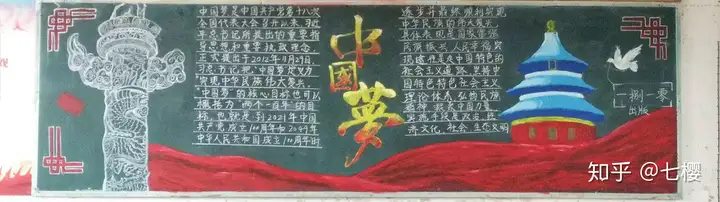 中国梦是中国共产党第十八次
全国代表大会召开以来,习近
平总书记所提出的重要指
导思想和重要执政理念,
正式提出于2012年11月29日.
习总书记把"中国梦"定义为
"实现中华民族伟大复兴
"中国梦"的核心目标也可以
概括为"两个一百年"的目
标,也就是到2021年中国
共产党成立100周年和2049年
中华人民共和国成立100周年时
中國夢
逐步并最终顺利实现
中华民族的伟大复兴,
具体表现是国家富强、
民族振兴、人民幸福实
现途径是走中国特色的
社会主义道路,坚持中
国特色特色社会主义
理论体系、弘扬民族
精神、凝聚中国力量,
实施手段是政治、经
济文化、社会、生态文明
一捌一零
出版
知乎 @七樱